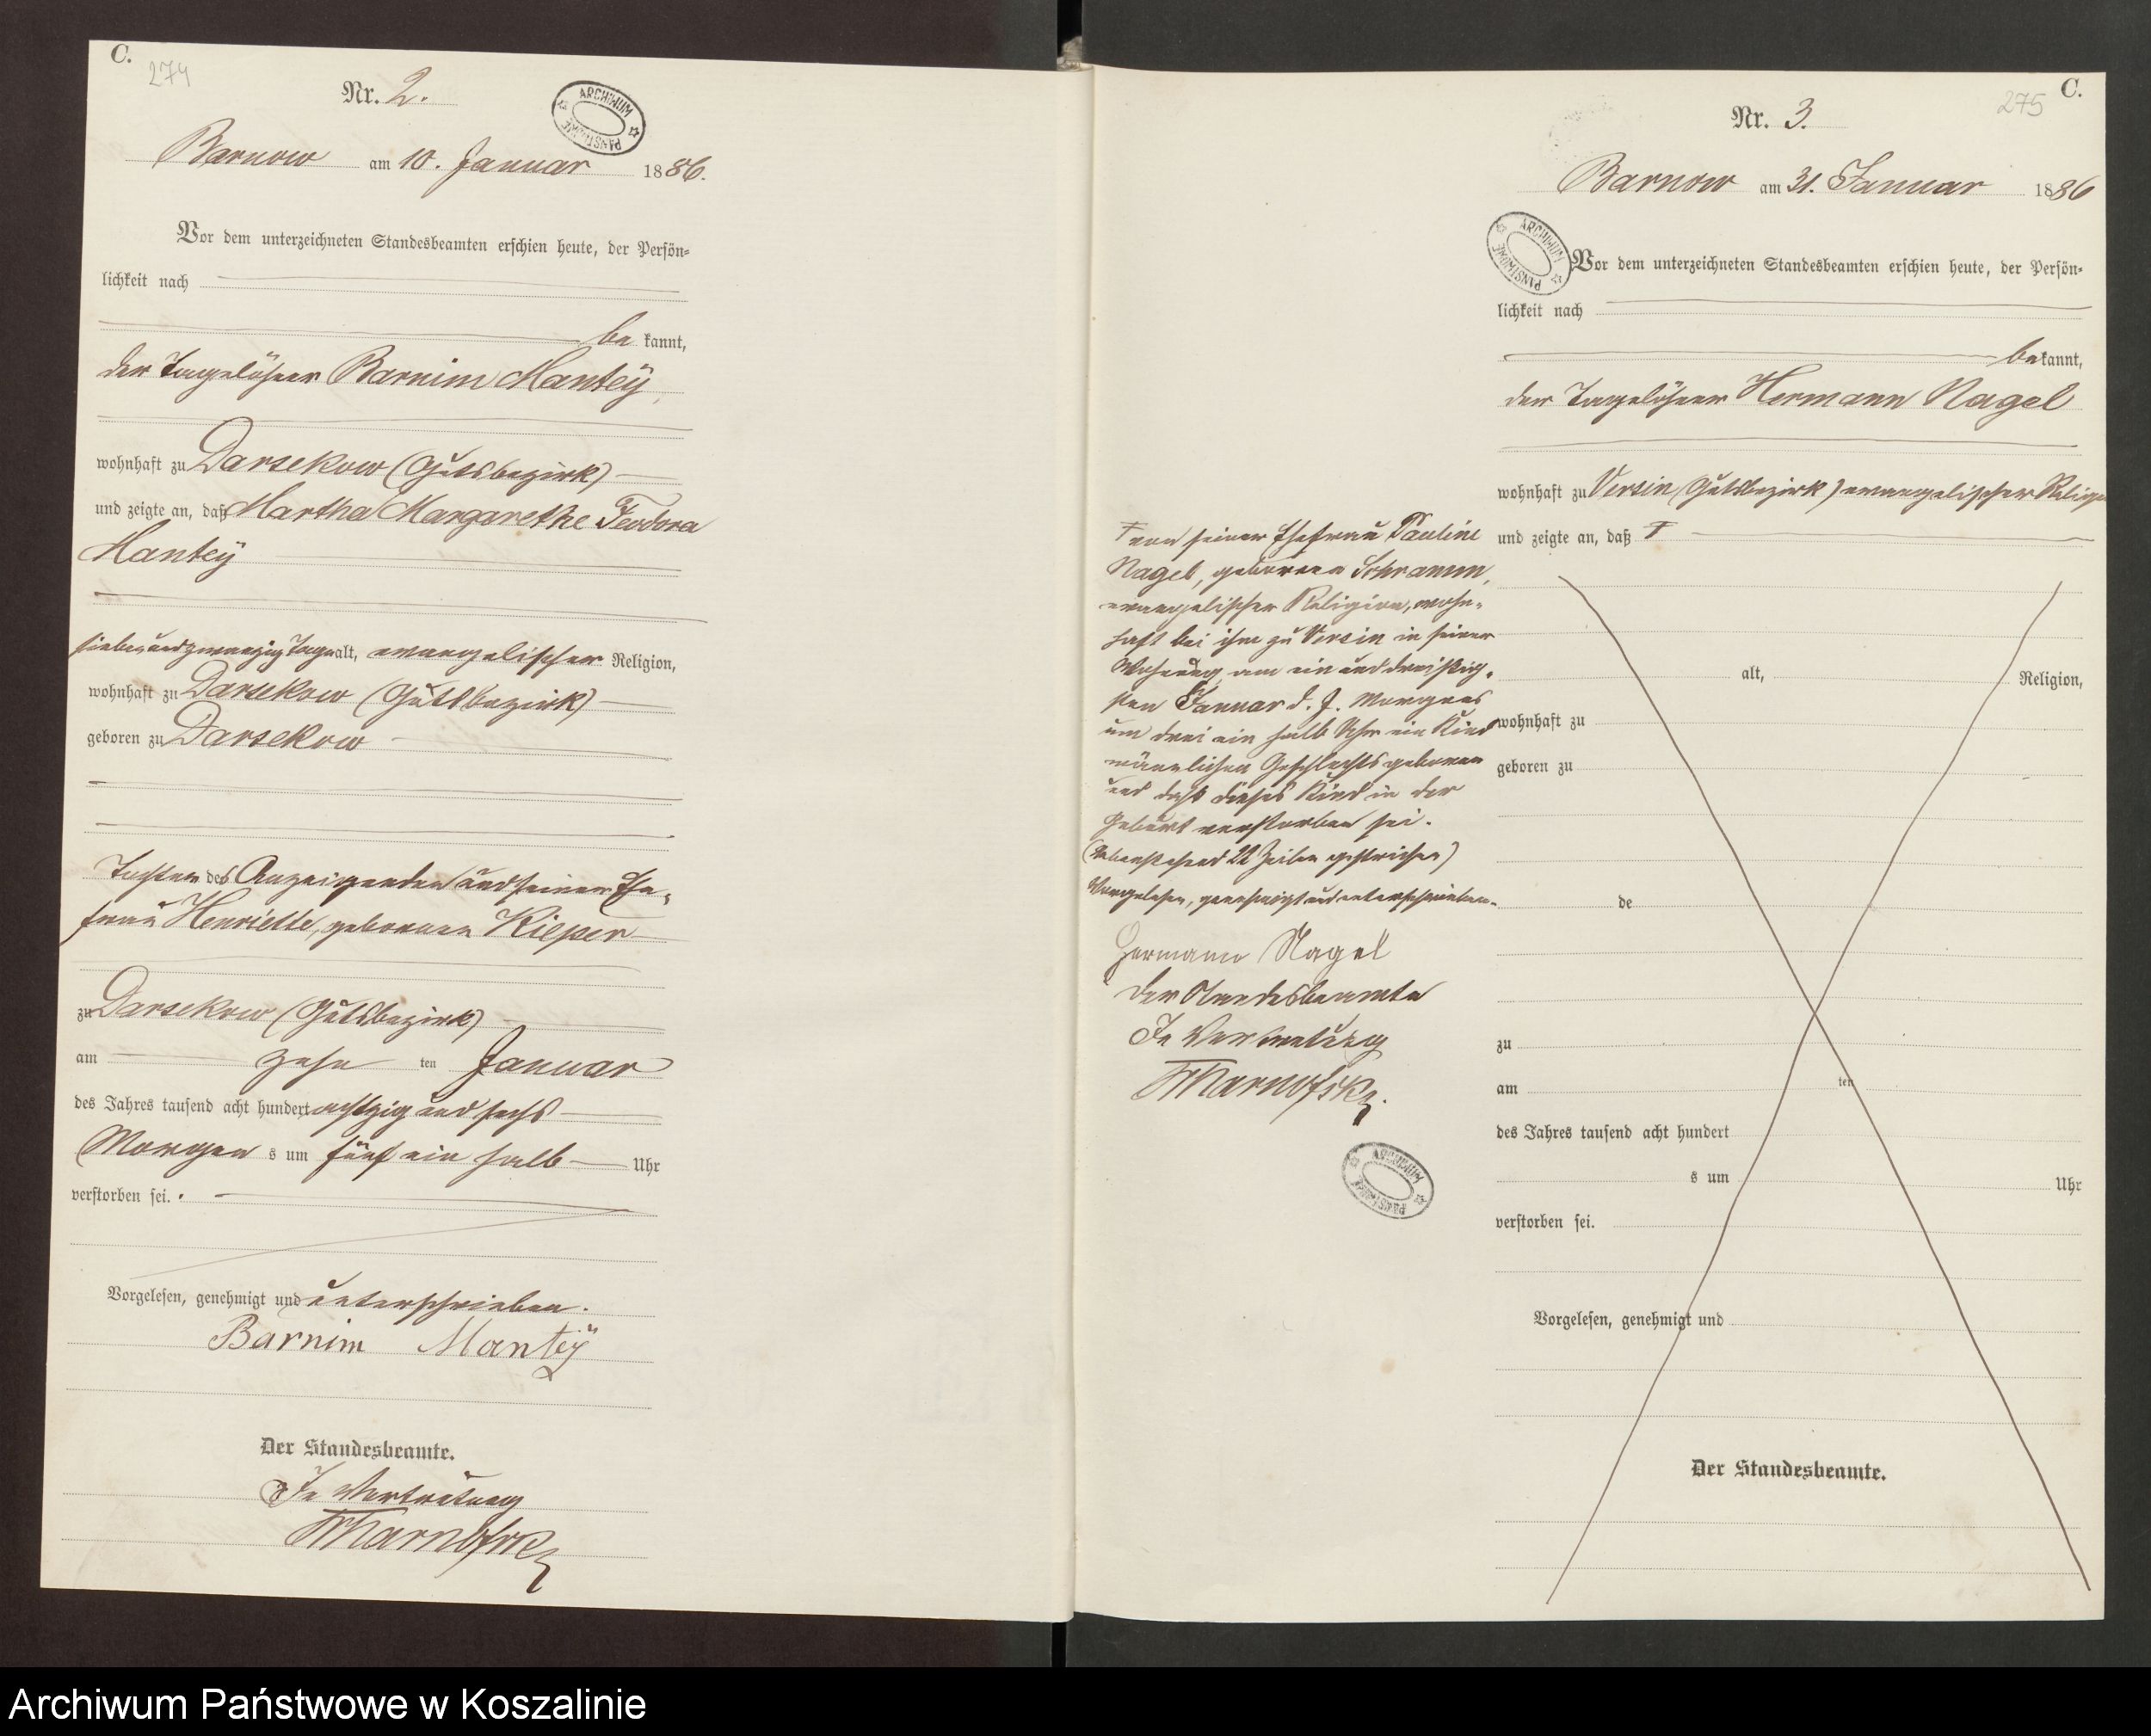 C.
274
Nr. 2.
ARCHIWUM PAŃSTWOWE
Barnow am 10. Januar 1886.
Vor dem unterzeichneten Standesbeamten erschien heute, der Persön-
lichkeit nach
be kannt,
der Tagelöhner Barnim Mantëy,
wohnhaft zu Darsekow (Gutsbezirk)
und zeigte an, daß Martha Margarethe Feodora
Mantëy
siebenundzwanzig Tage alt, evangelischer Religion,
wohnhaft zu Darsekow (Gutsbezirk)
geboren zu Darsekow
Tochter des Anzeigenden und seiner Ehe-
frau Henriette, geborenen Kieper
zu Darsekow (Gutsbezirk)
am zehn ten Januar
des Jahres tausend acht hundert achtzig und sechs
Morgen s um fünf ein halb Uhr
verstorben sei.
Vorgelesen, genehmigt und unterschrieben.
Barnim Mantëy
Der Standesbeamte.
In Vertretung
C.
275
Nr. 3.
Barnow am 31. Januar 1886
ARCHIWUM PAŃSTWOWE
Vor dem unterzeichneten Standesbeamten erschien heute, der Persön-
lichkeit nach
bekannt,
der Tagelöhner Hermann Nagel
wohnhaft zu Versin (Gutsbezirk) evangelischer Religion
und zeigte an, daß
von seiner Ehefrau Pauline
Nagel, geborenen Schramm,
evangelischer Religion, wohn-
haft bei ihm zu Versin in seiner
Wohnung, am ein und dreißig-
sten Januar d. J. Morgens
um drei ein halb Uhr ein Kind
männlichen Geschlechts geboren
und daß dieses Kind in der
Geburt verstorben sei.
(Nebenstehend 22 Zeilen gestrichen)
Vorgelesen, genehmigt und unterschrieben.
Hermann Nagel
Der Standesbeamte
In Vertretung
ARCHIWUM PAŃSTWOWE
alt, Religion,
wohnhaft zu
geboren zu
de
zu
am ten
des Jahres tausend acht hundert
s um Uhr
verstorben sei.
Vorgelesen, genehmigt und
Der Standesbeamte.
Archiwum Państwowe w Koszalinie